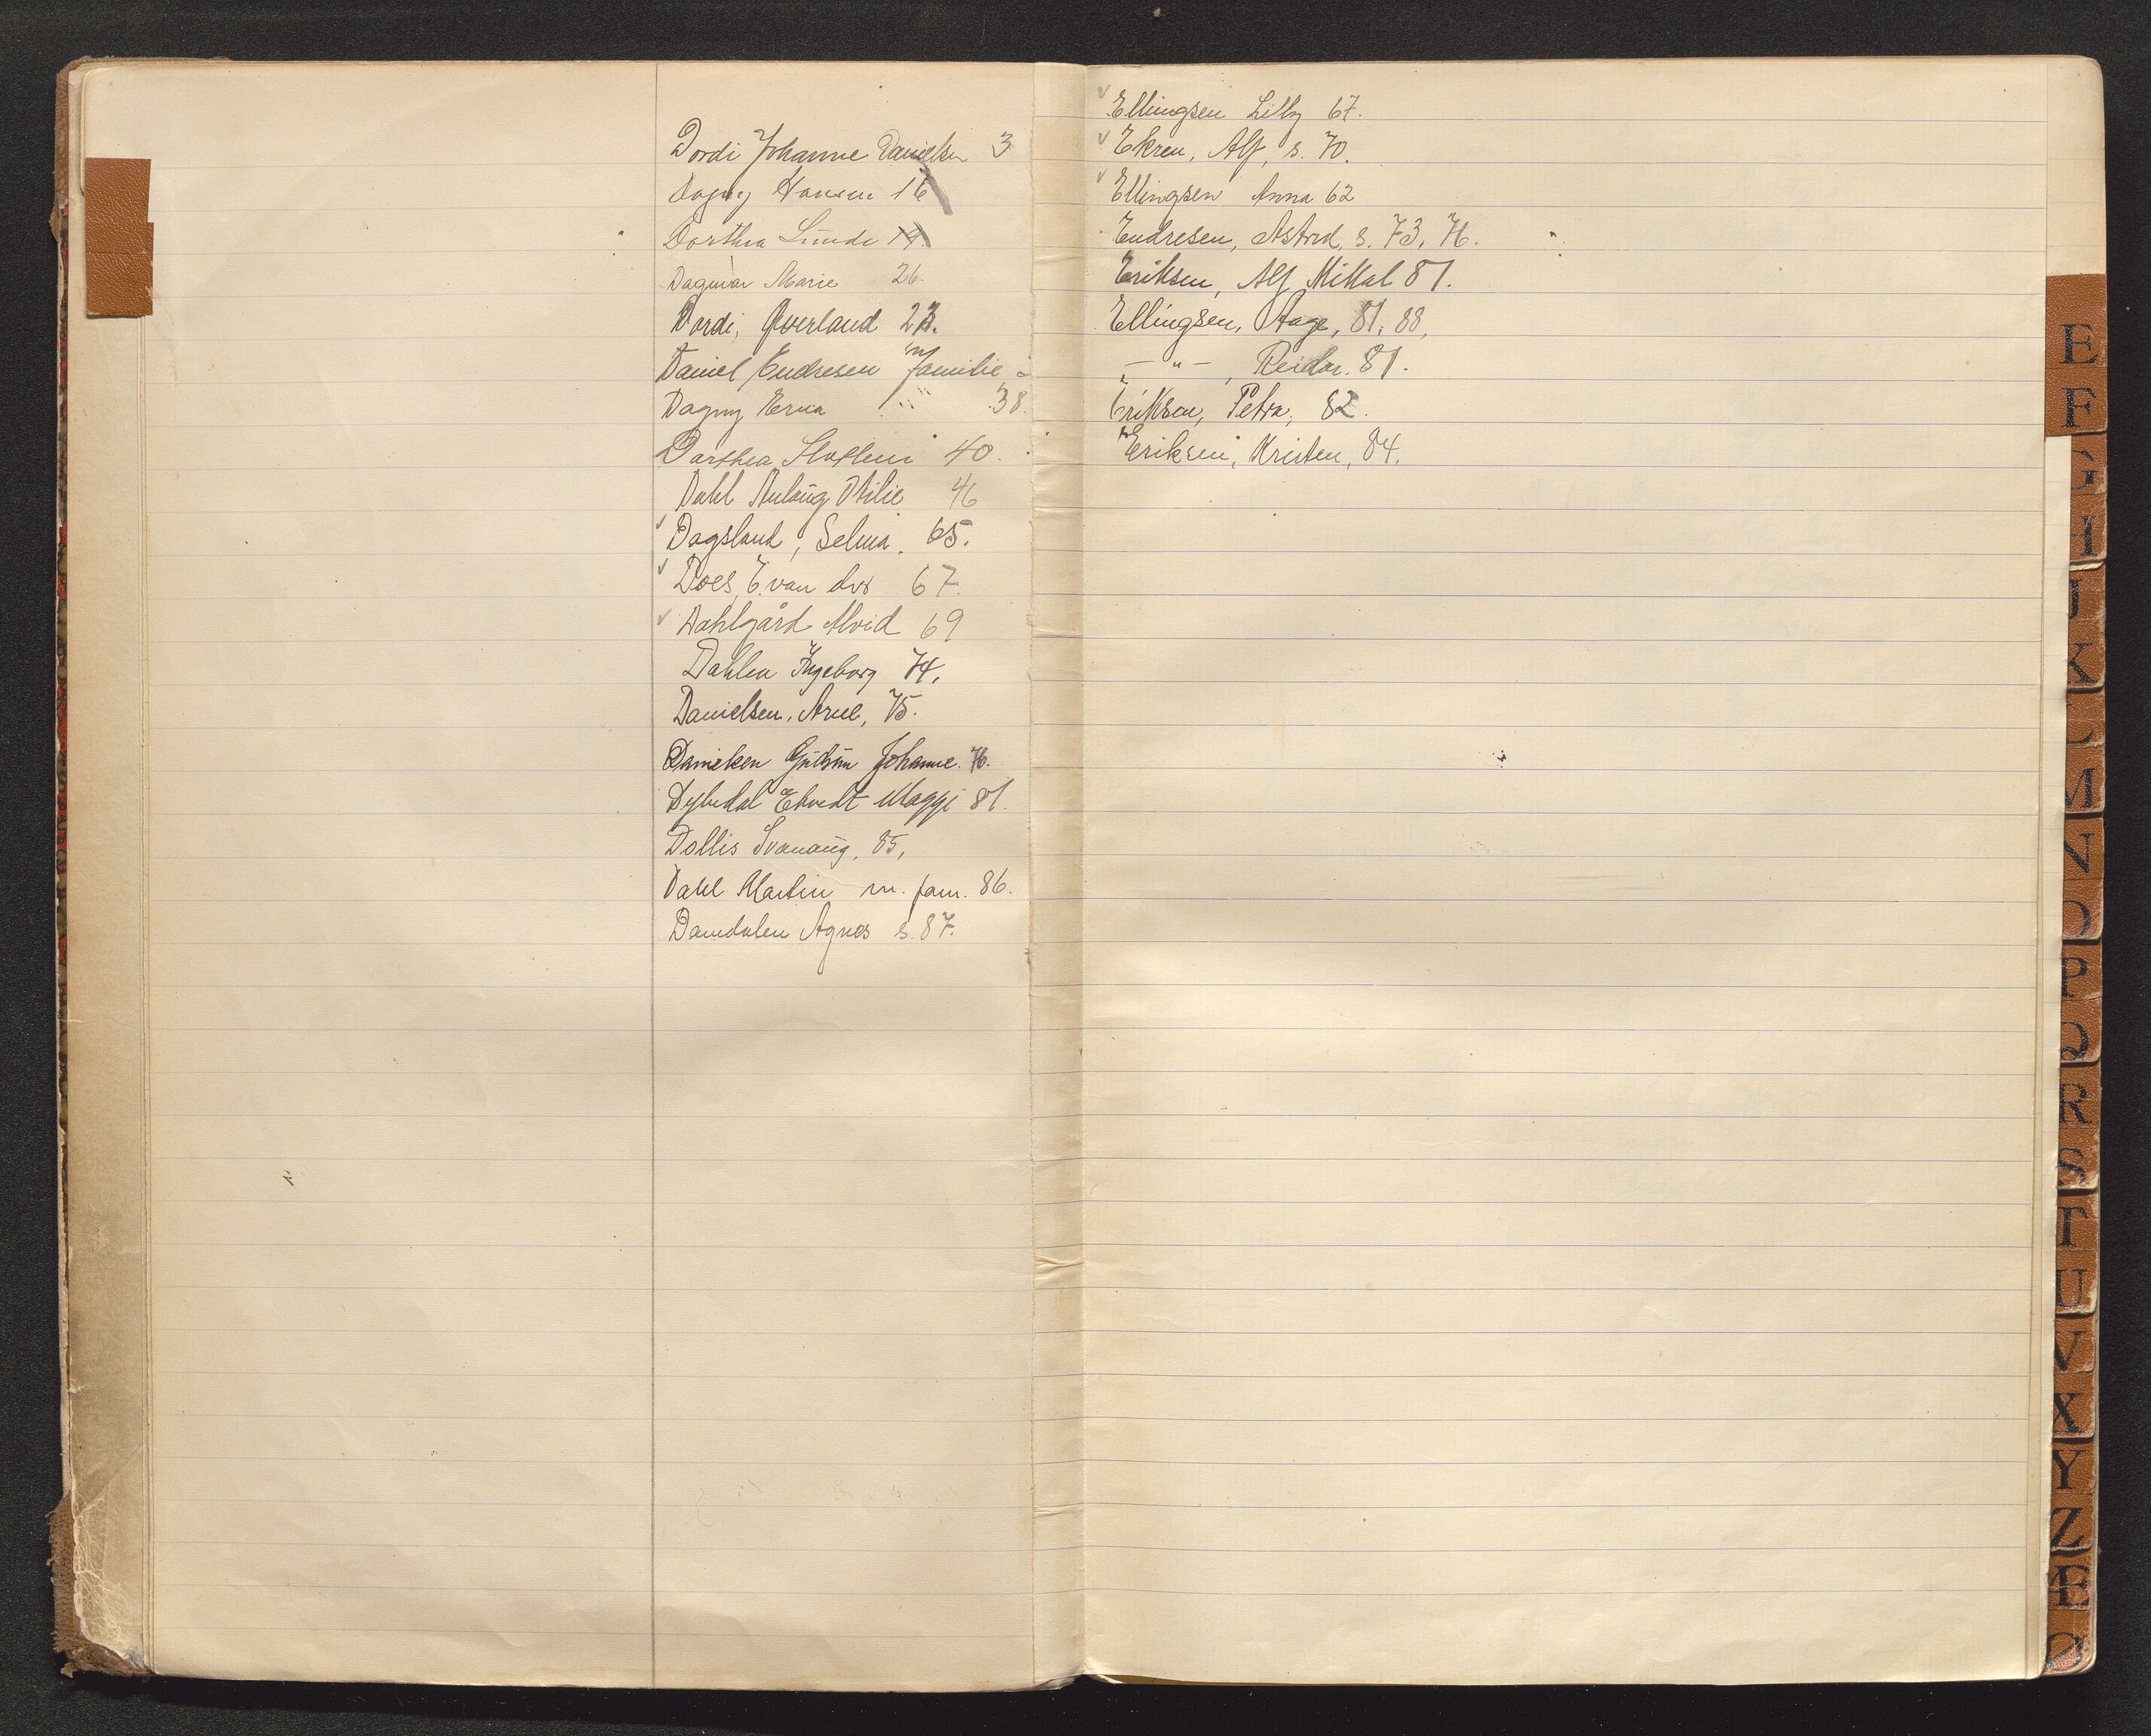 Dordi Johanne Danielsen 3
Dagny Hansen 16
Dorthea Lunde 19.
Dagmar Marie 26.
Dordi, Qverland 27.
Daniel Endresen m familie
Dagny Erna " 38.
Dorthea 40.
Dahl Otilie 46
v Dagsland, Selma. 65.
v Does, E. van der 67.
v Dahlgård Alvid 69
Dahlen Ingeborg 74.
Danielsen, Arne, 75.
Danielsen Gudrun Johanne. 76.
Dybedal Maggi 81.
Dollis Svanaug, 85,
Dahl Martin m. fam. 86.
Damdalen Agnes s. 87.
v Ellingsen Lilly 67.
v Ekren, Alf, s. 70.
v Ellingsen Anna 62
Endresen, Astrid, s. 73, 76.
Eriksen, Alf Mikal 81.
Ellingsen, Aage, 81, 88,
— " — , Reidar. 81.
Eriksen, Petra, 82.
Eriksen, Kristen, 84.
E
F
G
H
J
K
L
M
N
O
P
Q
R
S
T
U
V
X
Y
Z
Æ
Ø